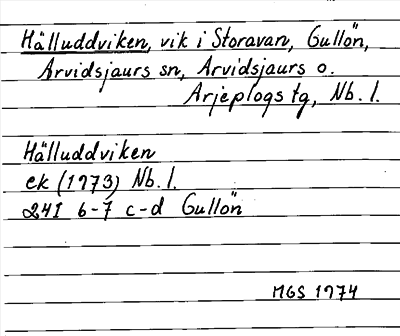 Hälluddviken, vik i Storavan, Gullön,
Arvidsjaurs sn, Arvidsjaurs o.
Arjeplogs tg, Nb. l.
Hälluddviken
ek (1973) Nb. l.
24I 6-7 c-d Gullön
MGS 1974